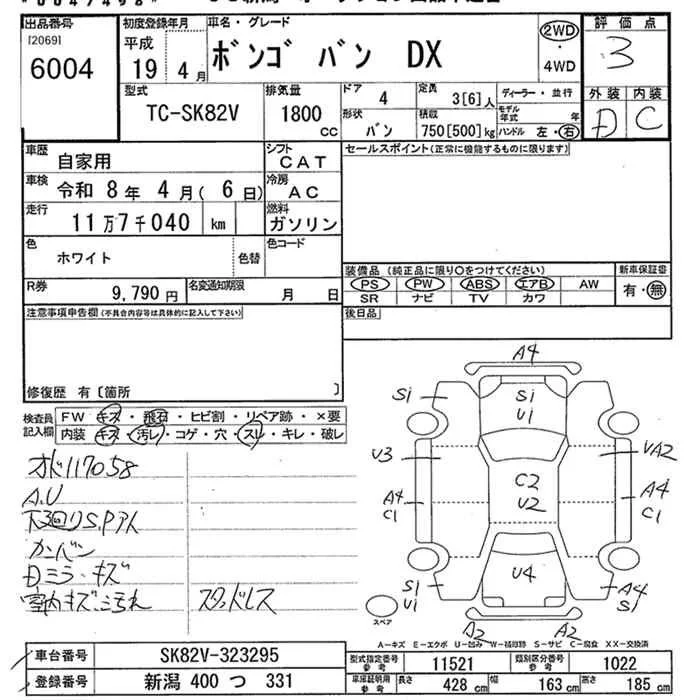 出品番号
[2069]
6004
初度登録年月
平成
19 4月
車名・グレード
ボンゴ バン DX
2WD
・
4WD
評価点
3
外装 内装
D C
型式
TC-SK82V
排気量
1800 cc
ドア 4
形状 バン
定員 3[6]人
積載 750[500]kg
ディーラー・並行
モデル年式 年
ハンドル 左・右
車歴
自家用
シフト
CAT
セールスポイント(正常に機能するものに限ります)
車検
令和 8年 4月( 6日)
冷房
AC
走行
11万7千040 km
燃料
ガソリン
色
ホワイト
色替
色コード
R券 9,790円
名変通知期限 月 日
装備品 (純正品に限り○をつけてください)
新車保証書
PS PW ABS エアB AW
SR ナビ TV カワ
有・無
注意事項申告欄(不具合内容等は具体的に記入して下さい)
後日品
修復歴 有〔箇所 〕
検査員
記入欄
FW キズ・飛石・ヒビ割・リペア跡・×要
内装 キズ・汚レ・コゲ・穴・スレ・キレ・破レ
オド117058
A.U
下回りS.Pアト
カンバン
Dミラーキズ
室内キズ汚れ
スタッドレス
A4
S1
S1
U1
U3
UA2
C2
U2
A4
C1
A4
C1
U4
S1
U1
A4
S1
A2
A2
スペア
A-キズ E-エクボ U-凹み W-補修跡 S-サビ C-腐食 XX-交換済
車台番号 SK82V-323295
登録番号 新潟 400 つ 331
型式指定番号
参考
11521
類別区分番号
参考
1022
車庫証明用
参考
長さ 428 cm
幅 163 cm
高さ 185 cm